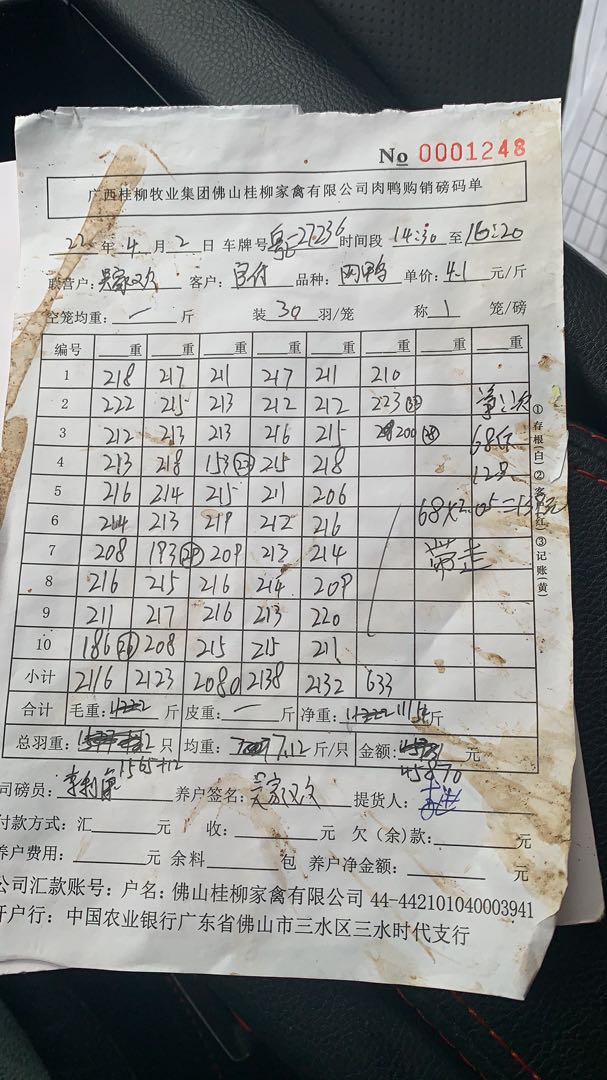 No 0001248
广西桂柳牧业集团佛山桂柳家禽有限公司肉鸭购销磅码单
22 年 4 月 2 日 车牌号 27236 时间段 14:30 至 16:20
联营户: 吴家双欢 客户: 品种: 单价: 4.1 元/斤
空笼均重: 一 斤 装 30 羽/笼 称 1 笼/磅
编号 重 重 重 重 重 重 重 重
1 218 217 211 217 211 210
2 222 215 213 212 212 223
3 212 213 213 216 215 200 68斤
4 213 218 153 215 218 12只
5 216 214 215 211 206
6 214 213 219 212 216 68×2.05=139元
7 208 193 209 213 214 带走
8 216 215 216 214 209
9 211 217 216 213 220
10 186 208 215 215 211
小计 2116 2123 2080 2138 2132 633
合计 毛重: 斤 皮重: 一 斤 净重: 斤
总羽重: 只 均重: 7.12 斤/只 金额: 元
1565+12 45870
司磅员: 养户签名: 提货人:
付款方式: 汇 元 收: 元 欠(余)款: 元
养户费用: 元 余料 包 养户净金额: 元
公司汇款账号: 户名: 佛山桂柳家禽有限公司 44-442101040003941
开户行: 中国农业银行广东省佛山市三水区三水时代支行
①存根(白)②客 (红)③记账(黄)